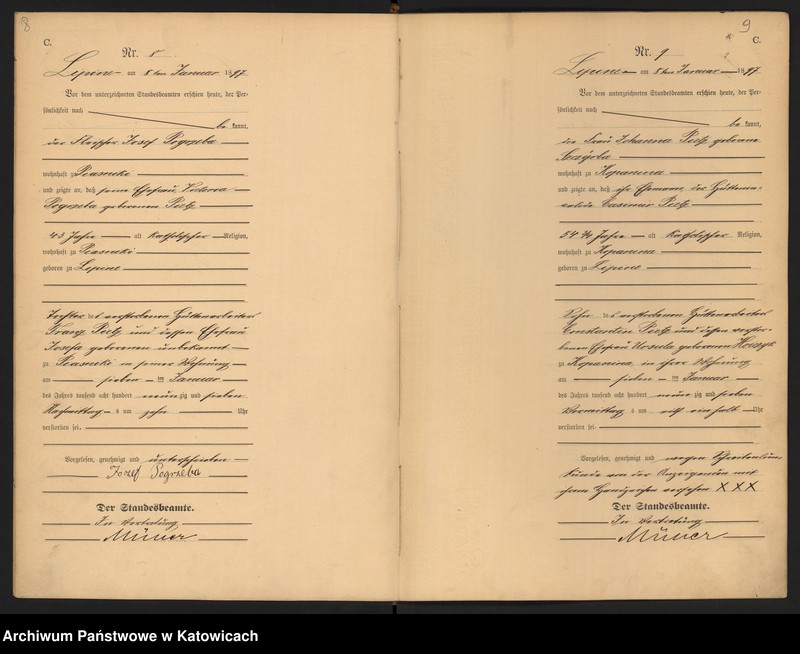 8
C.
Nr. 8
Lipine am 8ten Januar 1897
Vor dem unterzeichneten Standesbeamten erschien heute, der Per-
sönlichkeit nach
be kannt,
der Josef Pogrzeba
wohnhaft zu Piasniki
und zeigte an, daß seine Ehefrau
Pogrzeba geborenen
43 Jahre alt katholischer Religion,
wohnhaft zu Piasniki
geboren zu Lipine
Tochter des verstorbenen Hüttenarbeiters
Franz und dessen Ehefrau
Josefa geborenen unbekannt
zu Piasniki in seiner Wohnung
am sieben ten Januar
des Jahres tausend acht hundert neun zig und sieben
Nachmittag s um zehn Uhr
verstorben sei.
Vorgelesen, genehmigt und unterschrieben
Jozef Pogrzeba
Der Standesbeamte.
In Vertretung
9
C.
Nr. 9
Lipine am 8ten Januar 1897
Vor dem unterzeichneten Standesbeamten erschien heute, der Per-
sönlichkeit nach
be kannt,
die Frau Johanna geborene
wohnhaft zu Kopanina
und zeigte an, daß ihr Ehemann, der Hütteninva-
lide Casimir
54 ¾ Jahre alt katholischer Religion,
wohnhaft zu Kopanina
geboren zu Lipine
Sohn des verstorbenen Hüttenarbeiters
Constantin und dessen verstor-
benen Ehefrau Ursula geborenen
zu Kopanina, in ihrer Wohnung
am sieben ten Januar
des Jahres tausend acht hundert neun zig und sieben
Vormittag s um elf ein halb Uhr
verstorben sei.
Vorgelesen, genehmigt und wegen Schreibens
kunde von der Anzeigenden mit
ihrem Handzeichen versehen XXX
Der Standesbeamte.
In Vertretung
Archiwum Państwowe w Katowicach